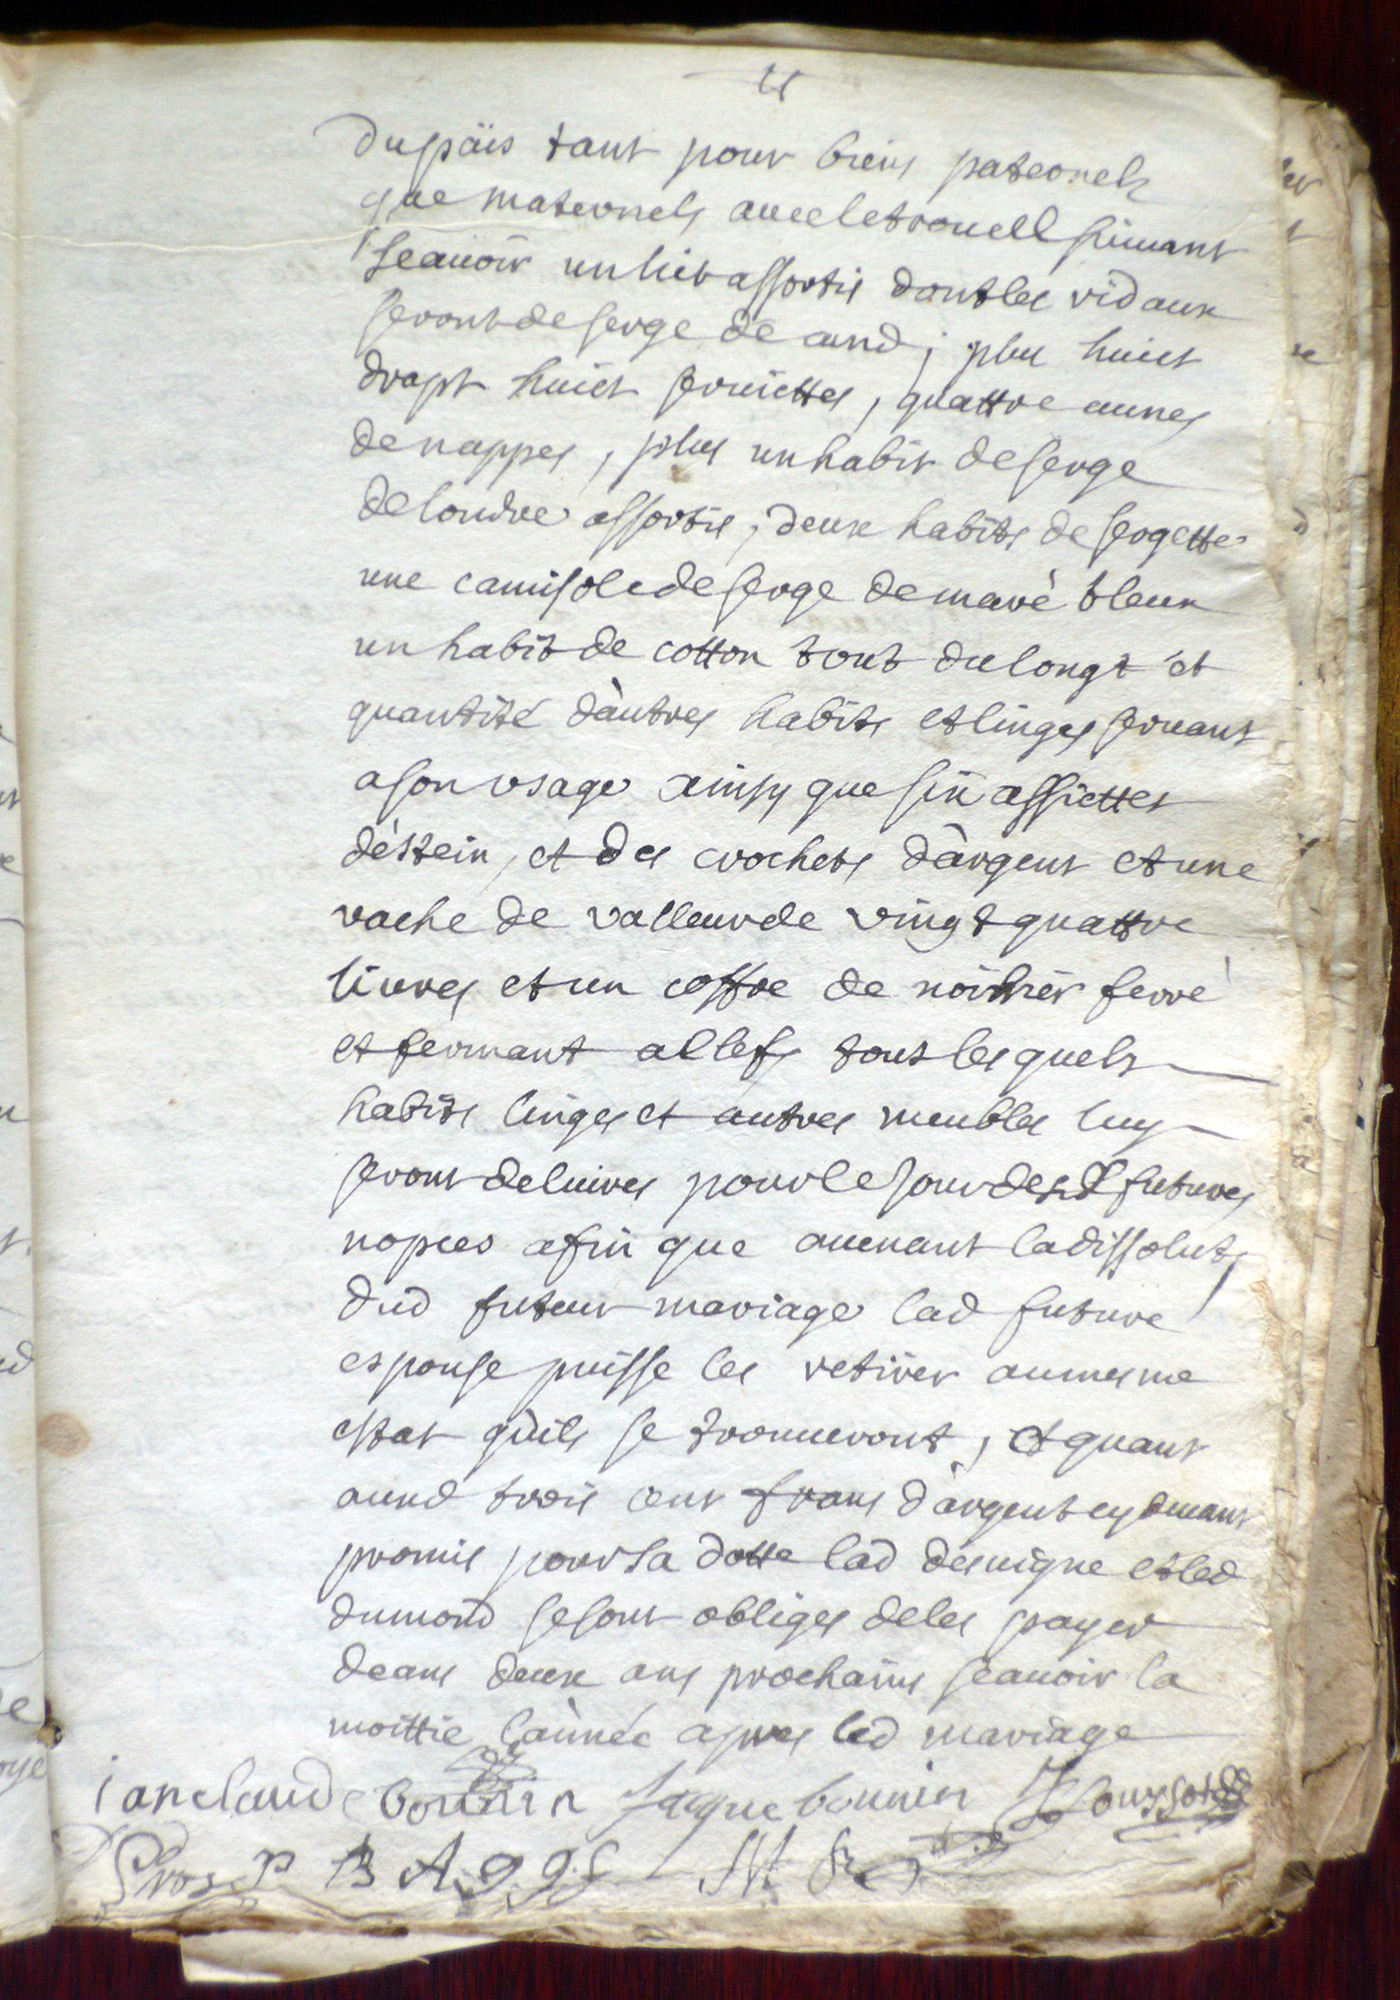 Dupaïs tant pour biens paternels
que maternels avec le trouell suivant
scavoir un lict assortis dont les ridaux
seront de serge de cund; plus huict
drapt huict serviettes, quattre aunes
de nappes, plus un habit de serge
de londre assortis, deux habits de sergette
une camisole de serge de marè bleux
un habit de cotton tout du longt et
quantité d'autres habits et linges servant
a son usage ainsy que six assiettes
d'estein, et des crochets d'argent et une
vache de valleur de vingt quattre
livres et un coffre de noirier ferré
et fermant a clefs tous lesquels
habits linges et autres meubles luy
seront delivres pour le jour desd futures
nopces afin que avenant la dissolut
dud futeur mariage lad future
espouse puisse les retirer au mesme
estat quils se trouveront, et quant
aund trois cent frans d'argent cy devant
promis pour sa dotte lad desvigne et led
dumond se sont obliges de les payer
deans deux ans prochains scavoir la
moittie l'année apres led mariage
ianclaude bounin Jaque bounin
P B A